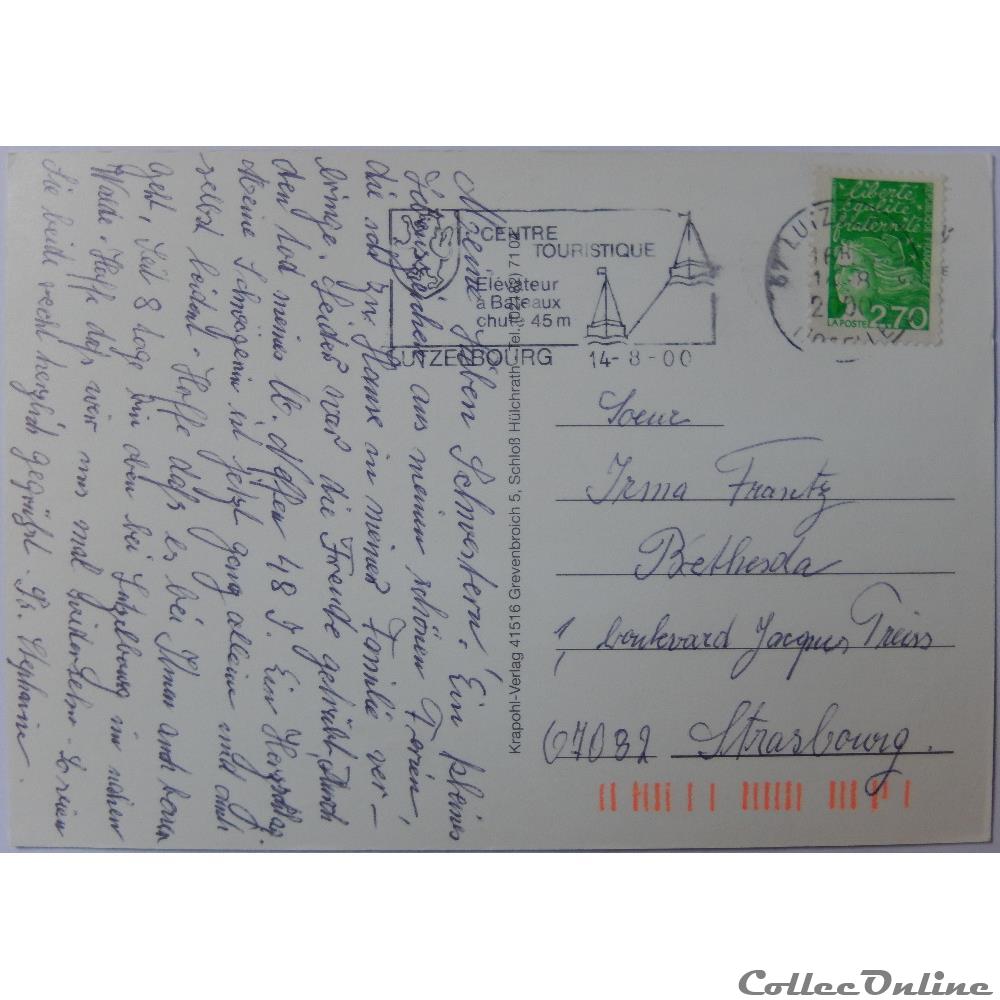 Meine lieben Schwestern! Ein kleines
Lebenszeichen aus meinen schönen Ferien,
die ich zu Hause in meiner Familie ver-
bringe. Leider war die Freude getrübt, durch
den Tod meines lb. Neffen 48 J. Ein Herzschlag.
Meine Schwägerin ist jetzt ganz allein und auch
selbst leidend. Hoffe daß es bei Ihnen auch
geht. Seit 8 Tage bin oben bei Lützelbourg im nahen
Walde. Hoffe daß wir uns mal wiedersehn. Seien
Sie beide recht herzlich gegrüßt. Sr. Stephanie.
CENTRE
TOURISTIQUE
Elévateur
à Bateaux
chute 45 m
LUTZELBOURG 14-8-00
Krapohl-Verlag 41516 Grevenbroich 5, Schloß Hülchrath, Tel. (02182) 7102
liberté
égalité
fraternité
LA POSTE 2,70
Soeur
Irma Frantz
Bethesda
1, boulevard Jacques Preiss
67082 Strasbourg.
CollecOnline